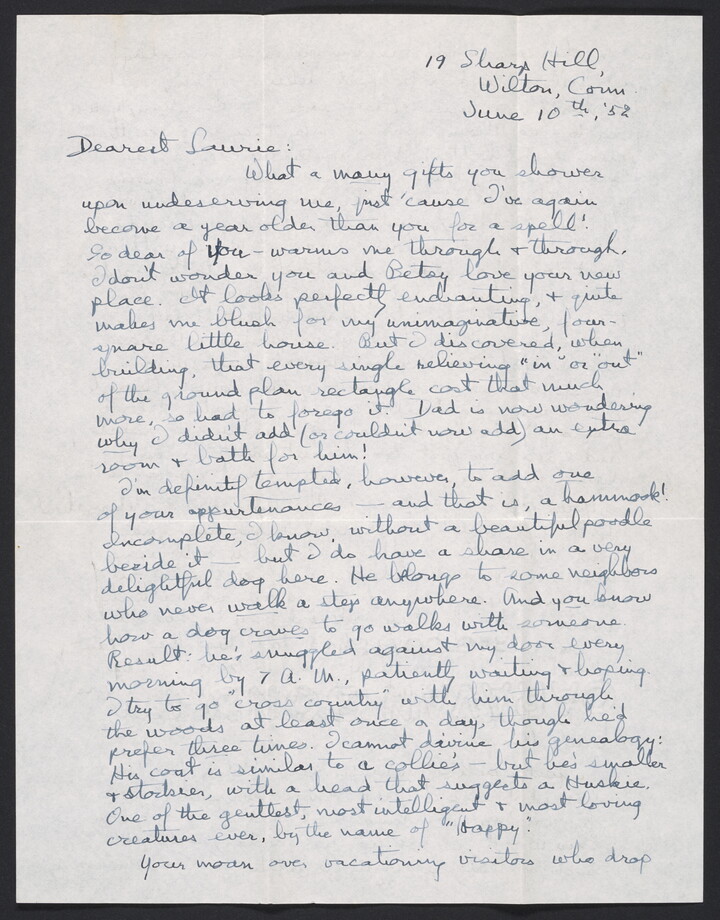 19 Sharp Hill,
Wilton, Conn.
June 10th, '52
Dearest Laurie:
What a many gifts you shower
upon undeserving me, just 'cause I've again
become a year older than you for a spell!
So dear of you – warms me through & through.
I don't wonder you and Betsy love your new
place. It looks perfectly enchanting, & quite
makes me blush for my unimaginative, four-
square little house. But I discovered, when
building, that every single relieving "in" or "out"
of the ground plan rectangle cost that much
more, so had to forego it. Dad is now wondering
why I didn't add (or couldn't now add) an extra
room & bath for him!
I'm definitely tempted, however, to add one
of your appurtenances – and that is, a hammock!
Incomplete, I know, without a beautiful poodle
beside it – but I do have a share in a very
delightful dog here. He belongs to some neighbors
who never walk a step anywhere. And you know
how a dog craves to go walks with someone.
Result: he's snuggled against my door every
morning by 7 A.M., patiently waiting & hoping.
I try to go "cross country" with him through
the woods at least once a day, though he'd
prefer three times. I cannot divine his genealogy:
His coat is similar to a collie's – but he's smaller
& stockier, with a head that suggests a Huskie.
One of the gentlest, most intelligent & most loving
creatures ever, by the name of "Happy".
Your moan over vacationing visitors who drop